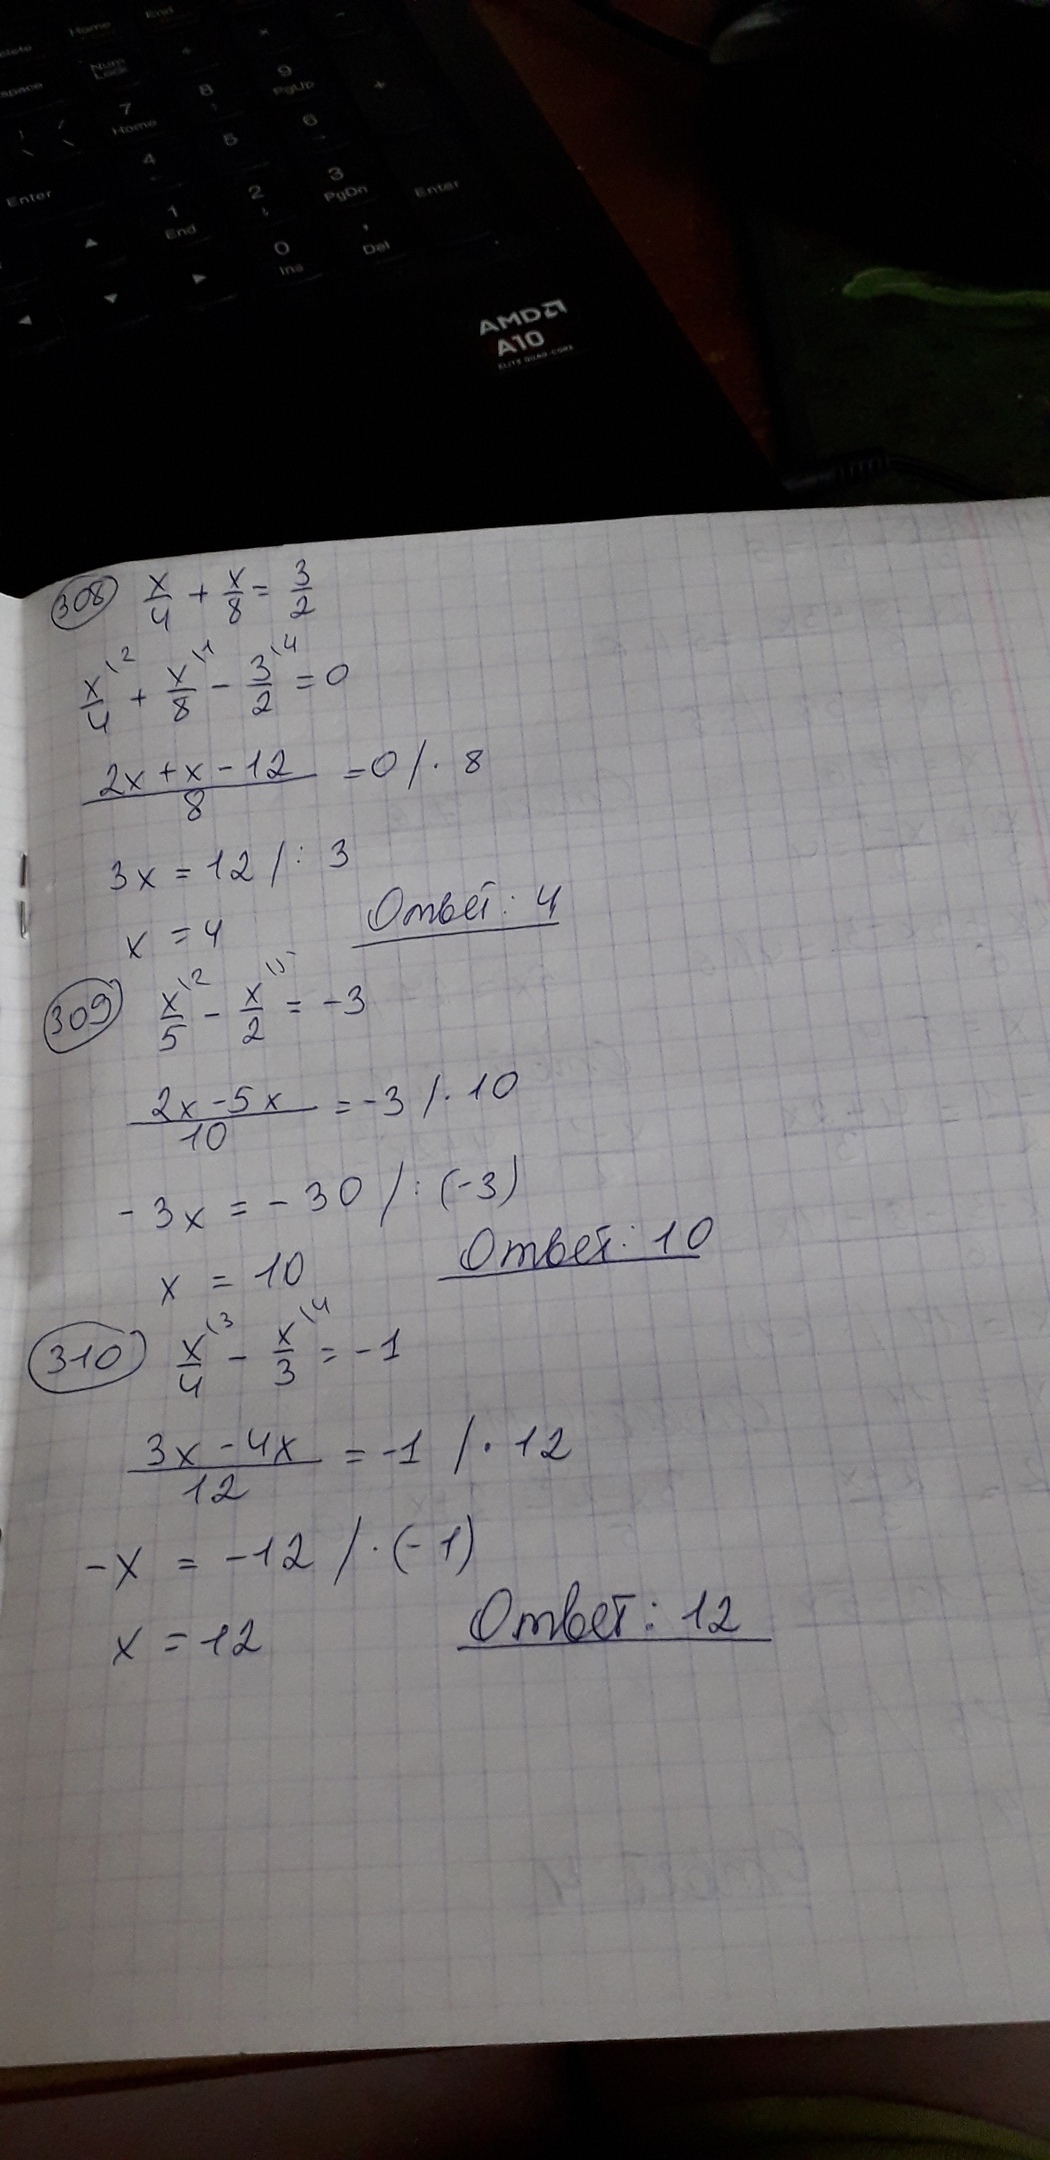 Home End -
Num Lock ÷ ×
space 7 Home 8 9 PgUp +
4 5 6
Enter 1 End 2 3 PgDn Enter
0 Ins , Del
AMD
A10
ELITE QUAD-CORE
308 x/4 + x/8 = 3/2
x/4 \2 + x/8 \1 - 3/2 \4 = 0
(2x + x - 12)/8 = 0 /· 8
3x = 12 /: 3
x = 4 Ответ: 4
309 x/5 \2 - x/2 \5 = -3
(2x - 5x)/10 = -3 /· 10
-3x = -30 /: (-3)
x = 10 Ответ: 10
310 x/4 \3 - x/3 \4 = -1
(3x - 4x)/12 = -1 /· 12
-x = -12 /· (-1)
x = 12 Ответ: 12